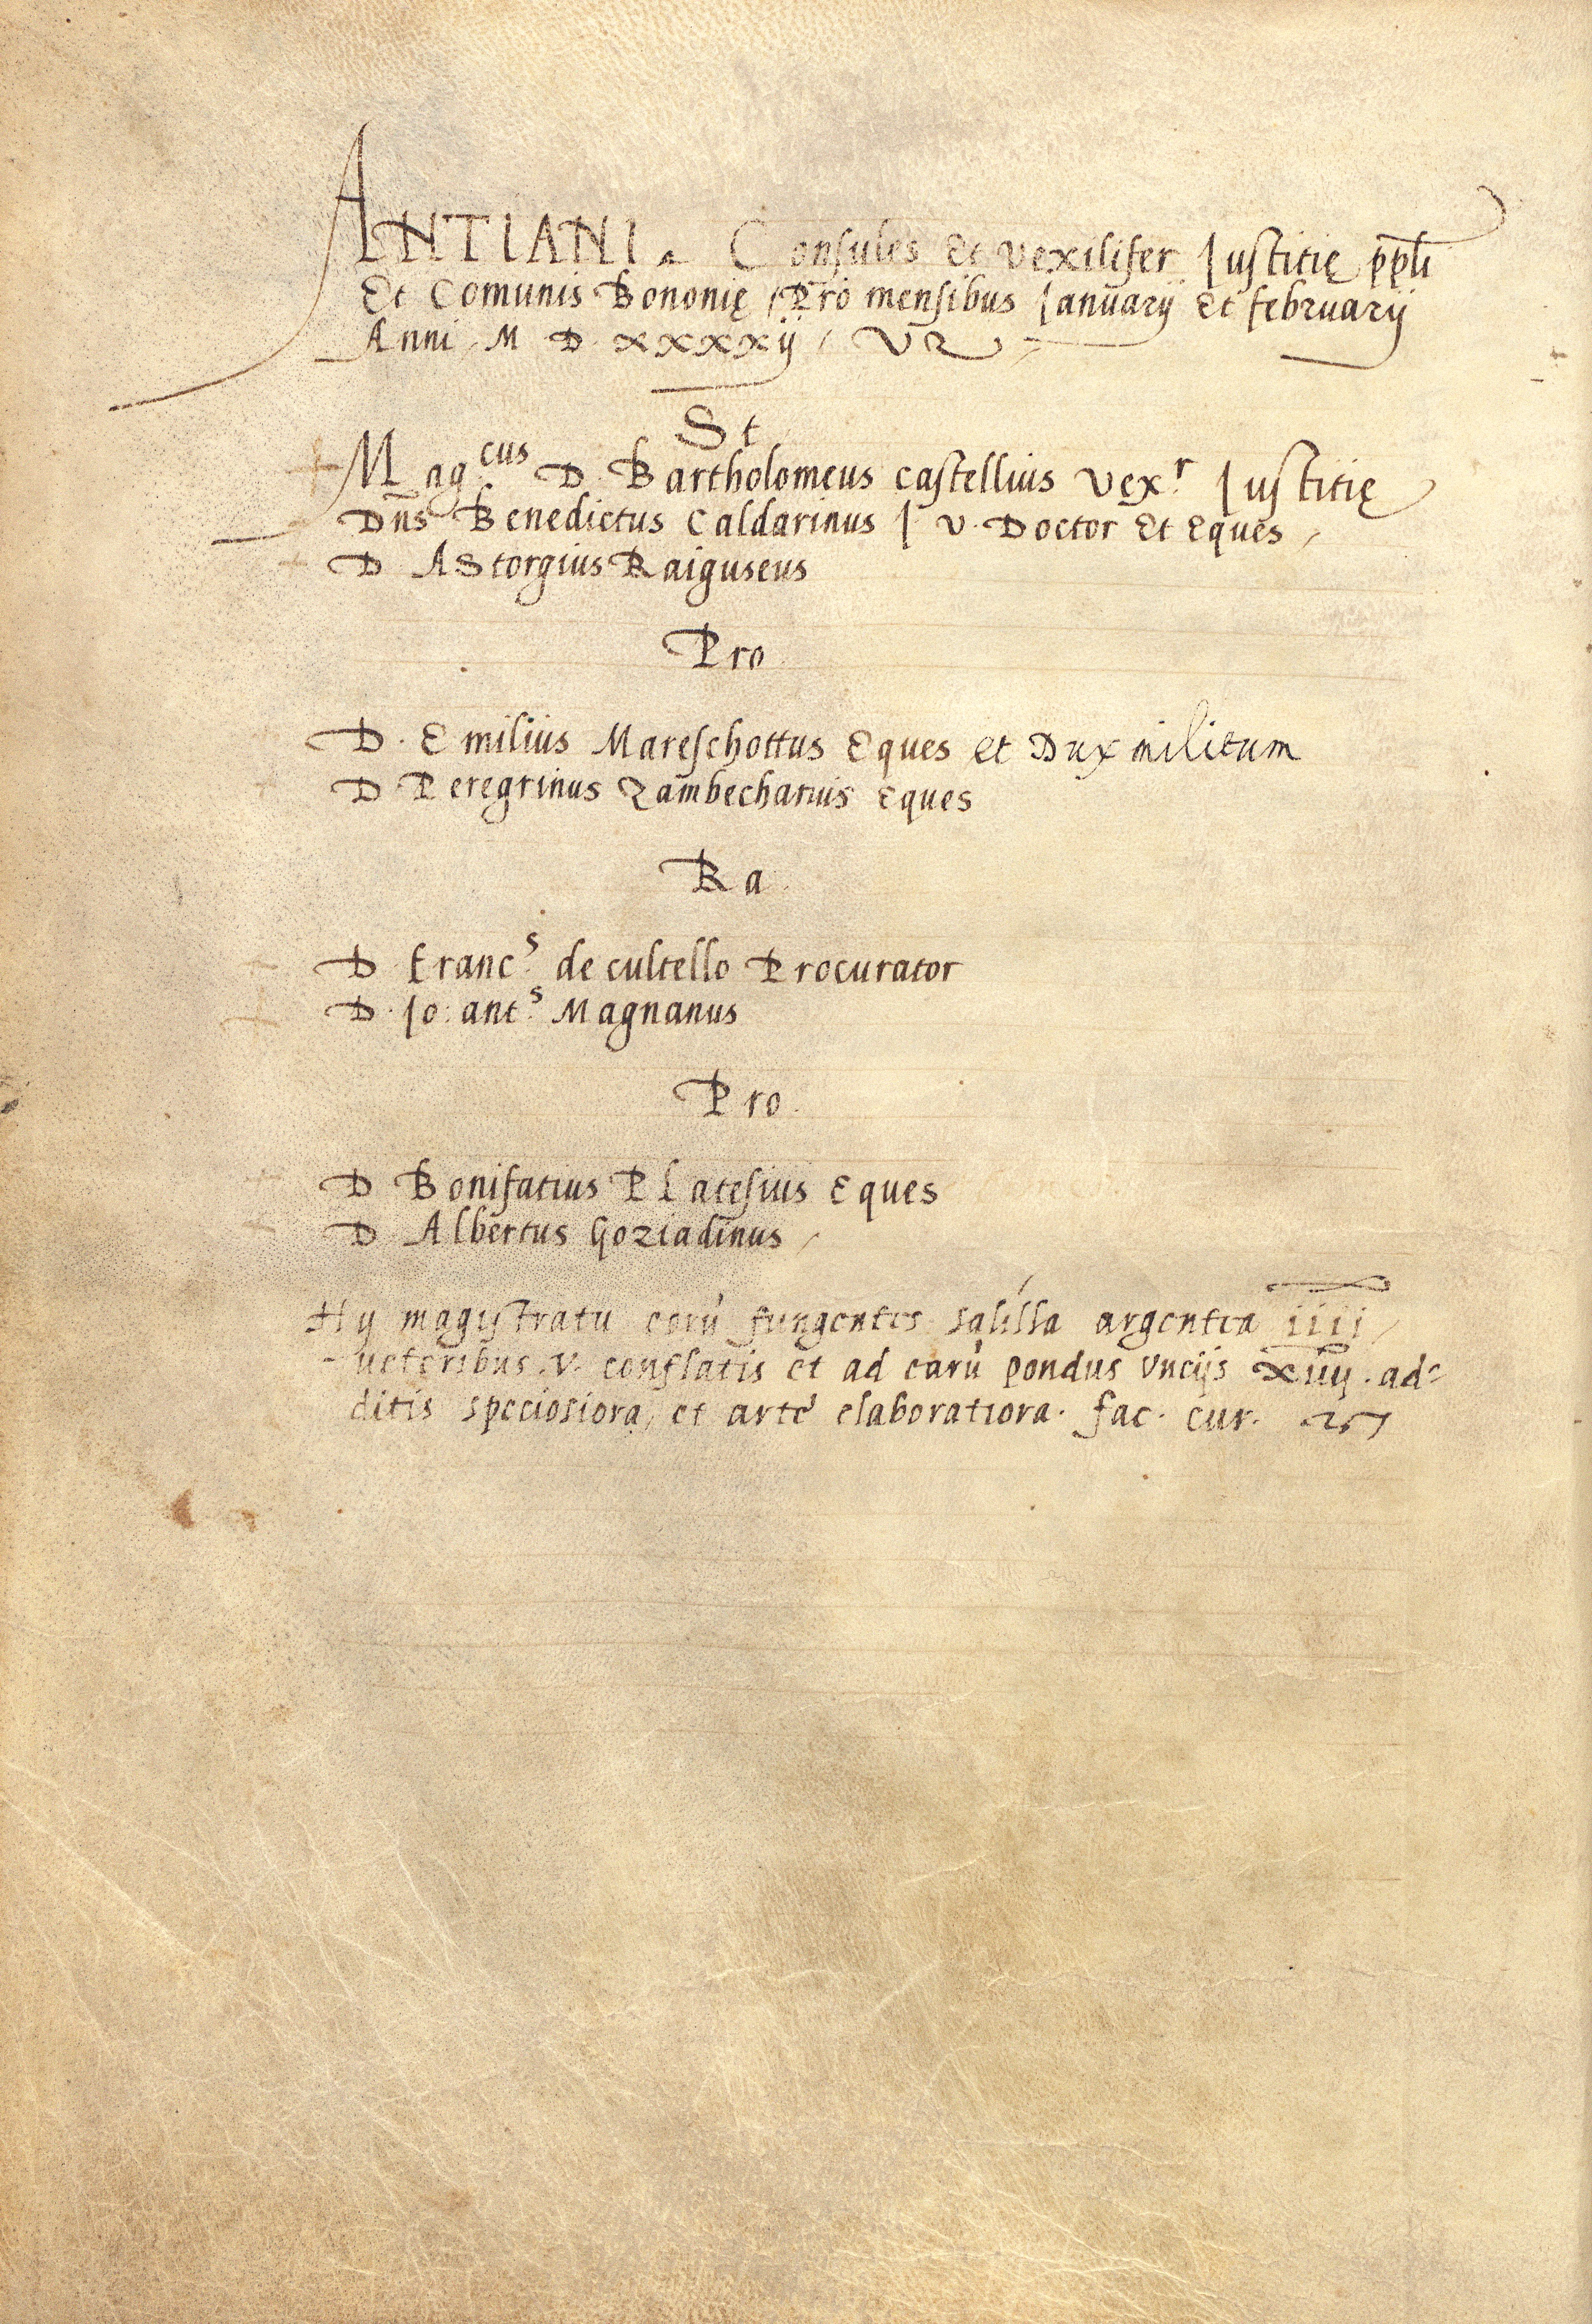 ANTIANI. Consules Et Vexilifer Iustitię pp̄li
Et Comunis Bononię / Pro mensibus Ianuarij Et februarij
Anni M D xxxxij / Vz
St
Mag.cus D. Bartholomeus castellius Vex.r Iustitię
Dn̄s Benedictus Caldarinus I V. Doctor Et Eques /
D AStorgius Raiguseus
Pro
D. Emilius Mareschottus Eques et Dux militum
D Peregrinus Zambecharius Eques
Ra
D franc.s de cultello Procurator
D. Io: ant.s Magnanus
Pro
D Bonifatius Platesius Eques
D Albertus Goziadinus /
Hij magistratu eorū fungentes argentea iiii /
ueteribus .v. conflatis et ad earū pondus vncijs xiiij. ad=
ditis speciosiora, et arte elaboratiora. fac. cur.